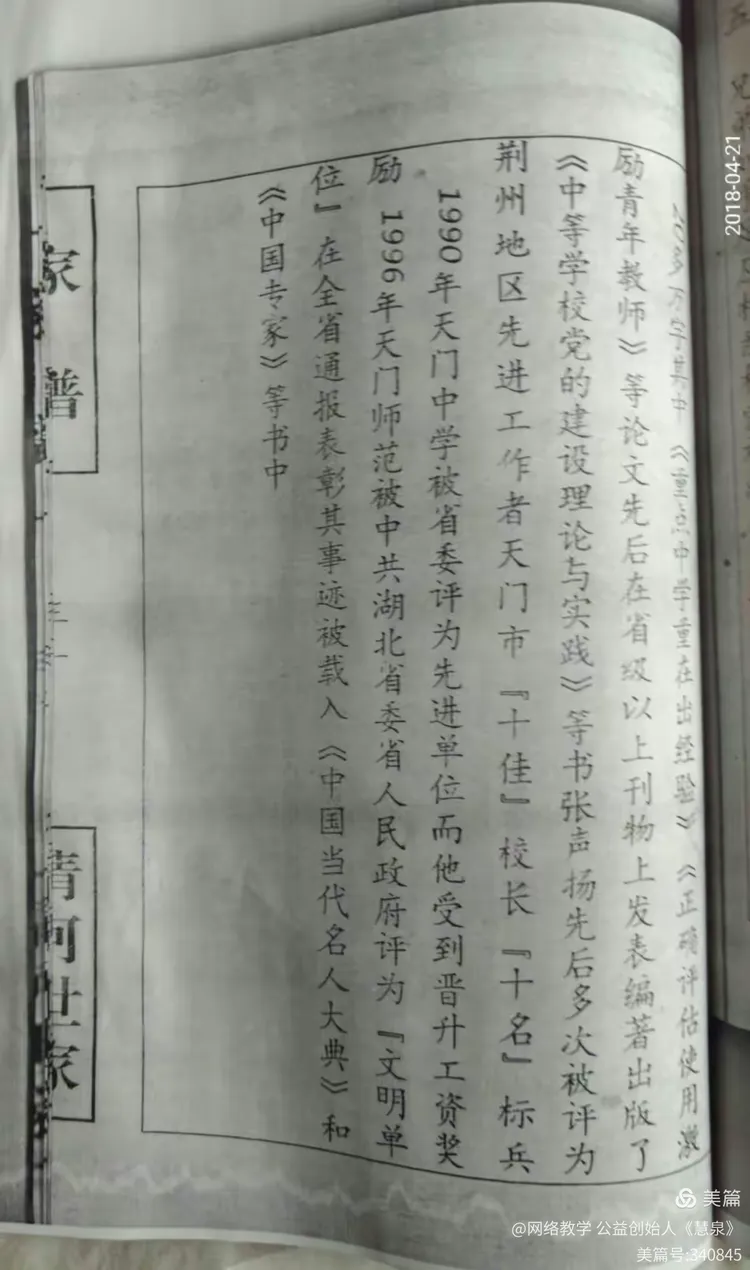 20多万字其中《重点中学重在出经验》《正确评估使用激
励青年教师》等论文先后在省级以上刊物上发表编著出版了
《中等学校党的建设理论与实践》等书张声扬先后多次被评为
荆州地区先进工作者天门市『十佳』校长『十名』标兵
1990年天门中学被省委评为先进单位而他受到晋升工资奖
励 1996年天门师范被中共湖北省委省人民政府评为『文明单
位』在全省通报表彰其事迹被载入《中国当代名人大典》和
《中国专家》等书中
家 谱
清河世家
2018-04-21
美篇
@网络教学 公益创始人《慧泉》
美篇号:340845